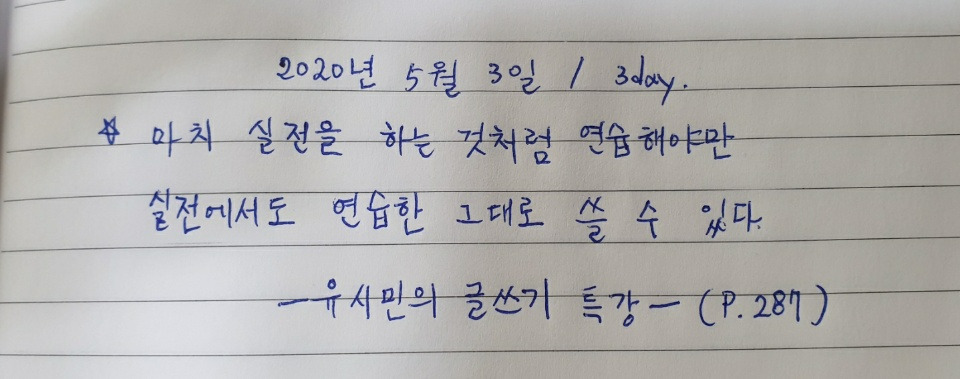 2020년 5월 3일 / 3day.
☆ 마치 실전을 하는 것처럼 연습해야만
실전에서도 연습한 그대로 쓸 수 있다.
- 유시민의 글쓰기 특강 - (P. 287)